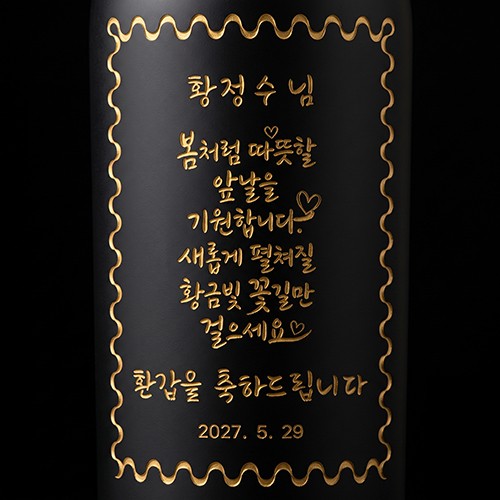 황정수 님
봄처럼 따뜻할
앞날을
기원합니다.
새롭게 펼쳐질
황금빛 꽃길만
걸으세요
환갑을 축하드립니다
2027. 5. 29